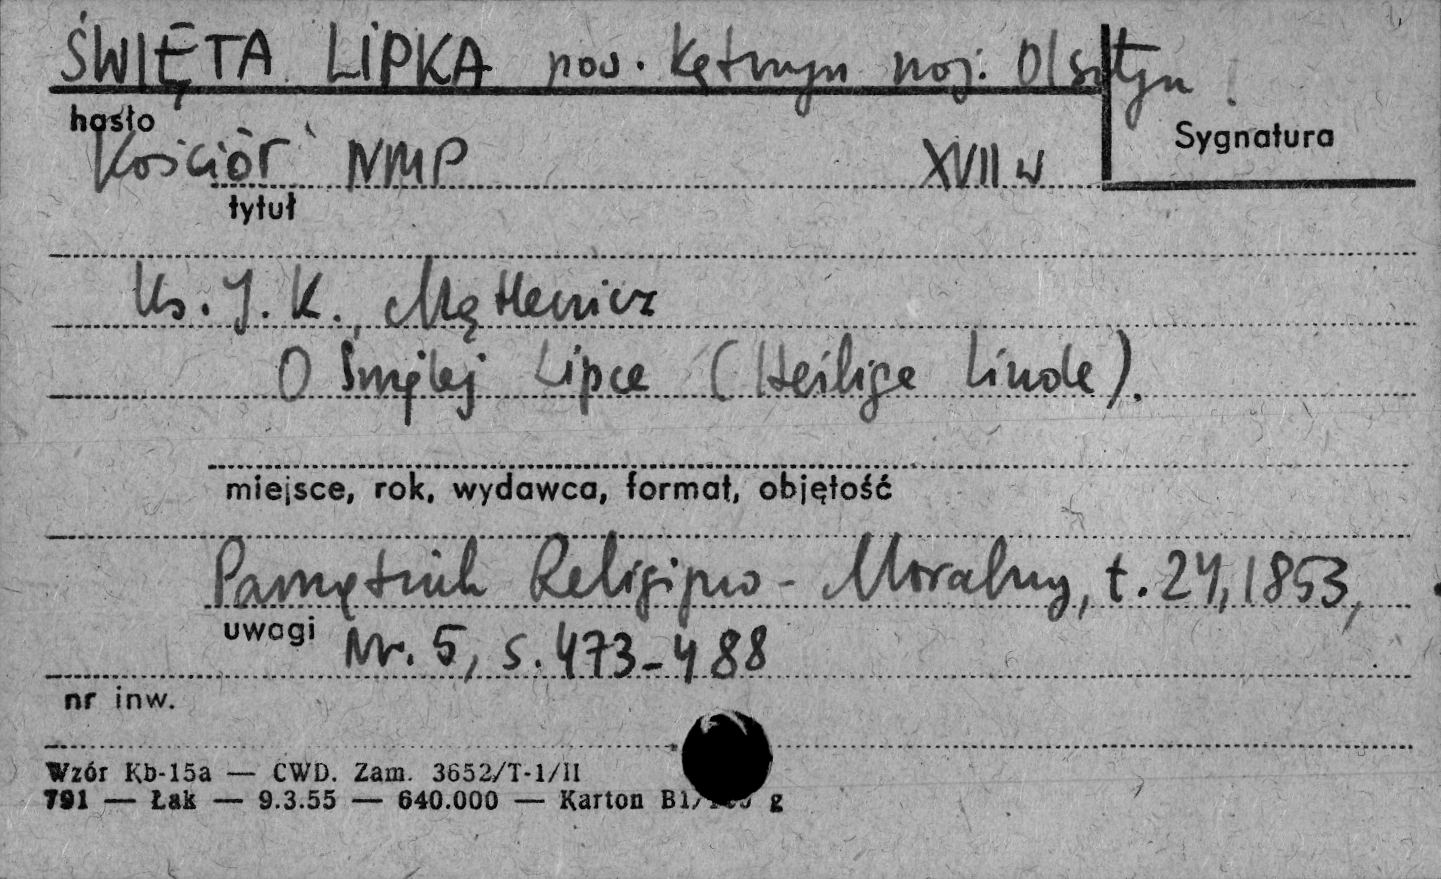 ŚWIĘTA LIPKA pow. Kętrzyn woj. Olsztyn
hasło
Sygnatura
Kościół NMP XVII w
tytuł
Ks. J. K.
O Świętej Lipce (Heilige Linde).
miejsce, rok, wydawca, format, objętość
Pamiętnik Religijno-Moralny, t. 24, 1853,
uwagi
Nr. 5, s. 473-488
nr inw.
Wzór Kb-15a — CWD. Zam. 3652/T-1/II
791 — Łak — 9.3.55 — 640.000 — Karton g